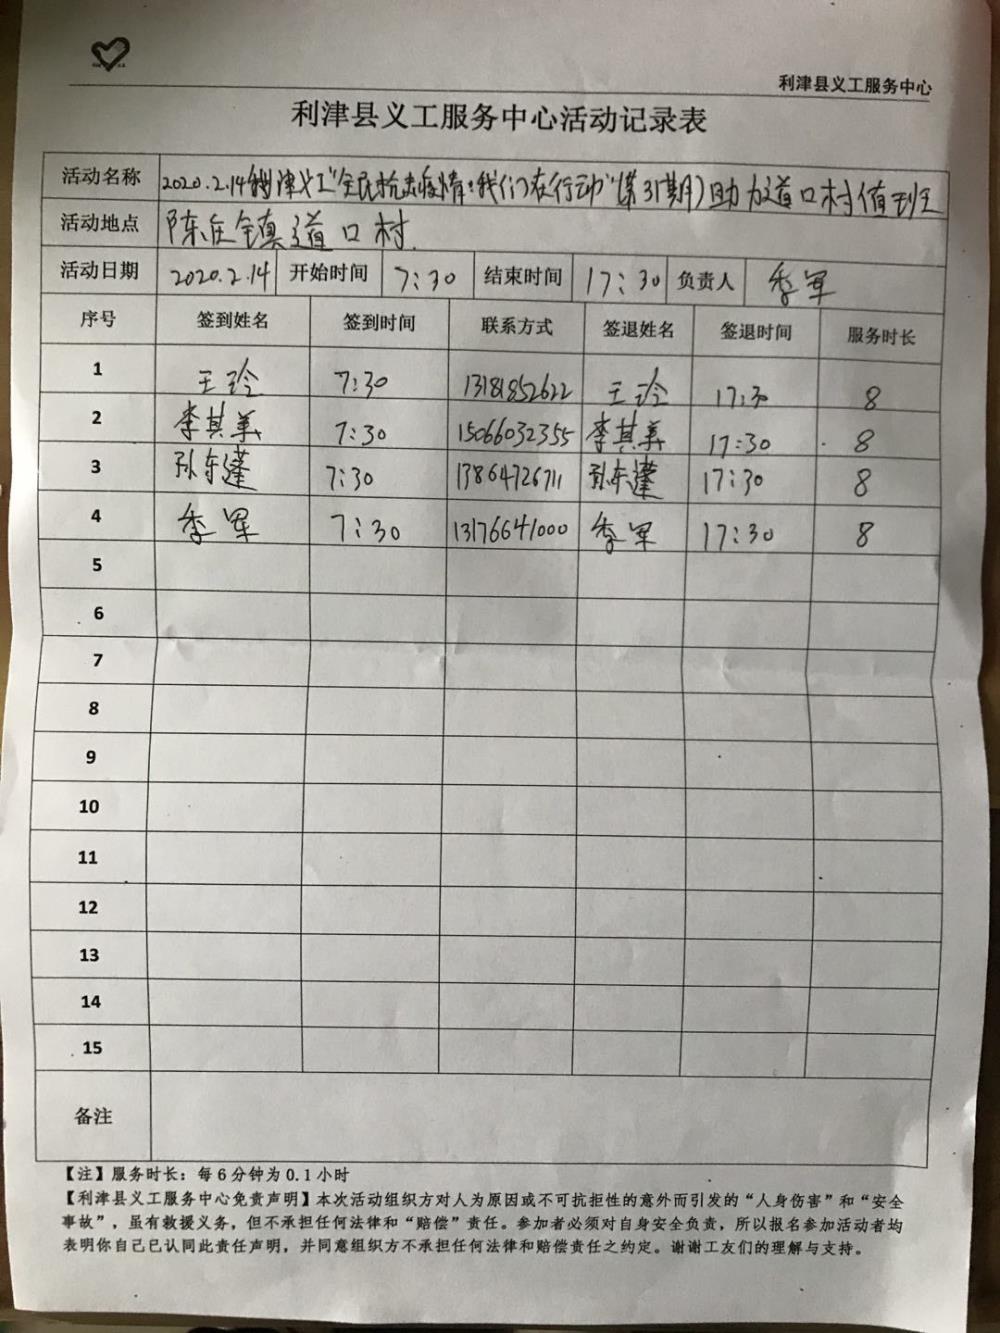 利津县义工服务中心
利津县义工服务中心活动记录表
活动名称 2020.2.14利津义工"全民抗击疫情:我们在行动"(第31期)助力道口村值班
活动地点 陈庄镇道口村
活动日期 2020.2.14 开始时间 7:30 结束时间 17:30 负责人 季军
序号 签到姓名 签到时间 联系方式 签退姓名 签退时间 服务时长
1 王玲 7:30 13181852622 王玲 17:30 8
2 李其美 7:30 15066032355 李其美 17:30 8
3 孙东蓬 7:30 13864726711 孙东蓬 17:30 8
4 季军 7:30 13176641000 季军 17:30 8
5
6
7
8
9
10
11
12
13
14
15
备注
【注】服务时长：每6分钟为0.1小时
【利津县义工服务中心免责声明】本次活动组织方对人为原因或不可抗拒性的意外而引发的“人身伤害”和“安全
事故”，虽有救援义务，但不承担任何法律和“赔偿”责任。参加者必须对自身安全负责，所以报名参加活动者均
表明你自己已认同此责任声明，并同意组织方不承担任何法律和赔偿责任之约定。谢谢工友们的理解与支持。